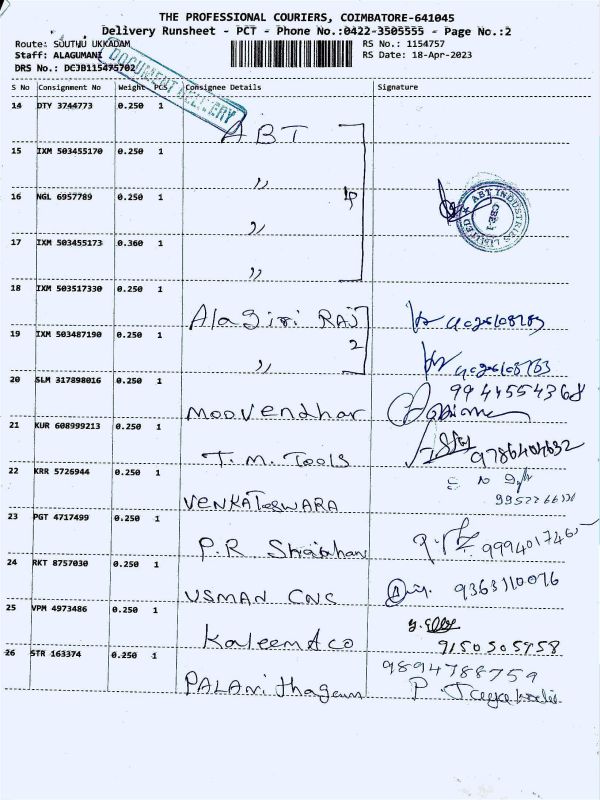 THE PROFESSIONAL COURIERS, COIMBATORE-641045
Delivery Runsheet - PCT - Phone No.:0422-3505555 - Page No.:2
Route: SOUTHU UKKADAM
RS No.: 1154757
Staff: ALAGUMANI
RS Date: 18-Apr-2023
DRS No.: DCJB115475702
DOCUMENT DELIVERY
S No Consignment No Weight PCS Consignee Details Signature
14 DTY 3744773 0.250 1 ABT
15 IXM 503455170 0.250 1 ,,
16 NGL 6957789 0.250 1 ,, 4
ABT INDUSTRIES LIMITED
CBE-1
17 IXM 503455173 0.360 1 ,,
18 IXM 503517330 0.250 1 Alagiri RAJ
19 IXM 503487190 0.250 1 ,, 2
20 SLM 317898016 0.250 1 Moovendhar 99445554368
21 KUR 608999213 0.250 1 T. M. Tools 9786404632
22 KRR 5726944 0.250 1 VENKATESWARA
23 PGT 4717499 0.250 1 P.R
24 RKT 8757030 0.250 1 USMAN CNC 9363110076
25 VPM 4973486 0.250 1 Kaleem & co 9150505958
26 STR 163374 0.250 1 9894788759